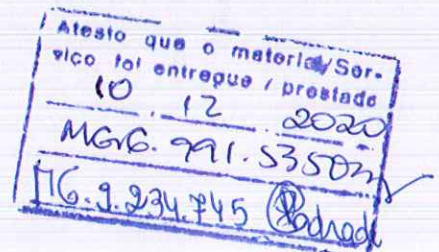 Atesto que o material/Ser-
viço foi entregue / prestado
10 . 12 . 2020
MG-6.991.535
MG.9.234.745